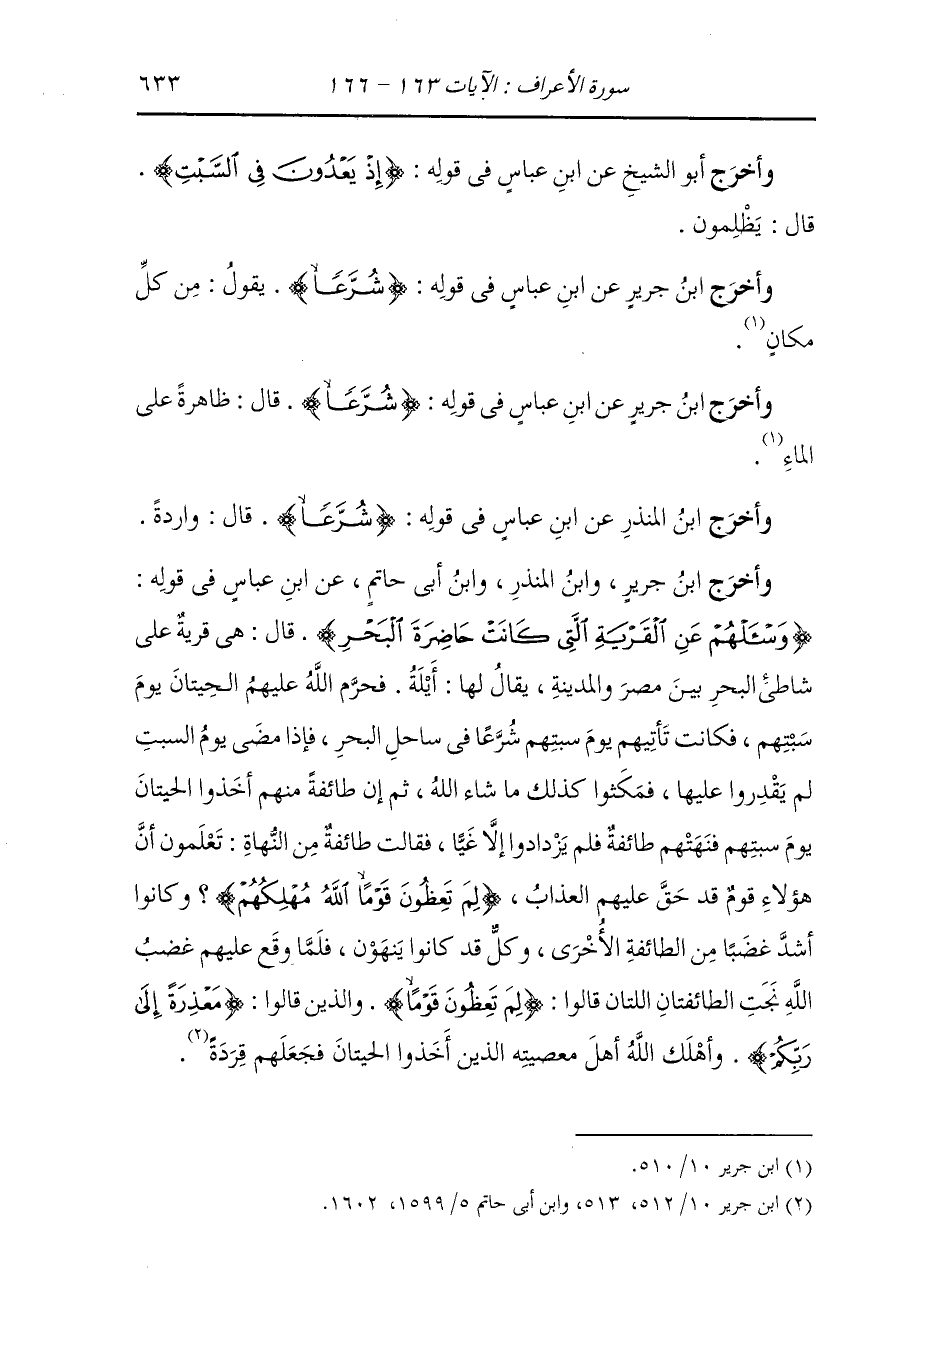 سورة الأعراف : الآيات ١٦٣ - ١٦٦ ٦٣٣
وأخرَج أبو الشيخِ عن ابنِ عباسٍ فى قولِه : ﴿إِذْ يَعْدُونَ فِى ٱلسَّبْتِ﴾ .
قال : يَظْلِمون .
وأخرَج ابنُ جريرٍ عن ابنِ عباسٍ فى قولِه : ﴿شُرَّعًا﴾ . يقولُ : مِن كلِّ
مكانٍ(١) .
وأخرَج ابنُ جريرٍ عن ابنِ عباسٍ فى قولِه : ﴿شُرَّعًا﴾ . قال : ظاهرةً على
الماءِ(١) .
وأخرَج ابنُ المنذرِ عن ابنِ عباسٍ فى قولِه : ﴿شُرَّعًا﴾ . قال : واردةً .
وأخرَج ابنُ جريرٍ ، وابنُ المنذرِ ، وابنُ أبى حاتمٍ ، عن ابنِ عباسٍ فى قولِه :
﴿وَسْـَٔلْهُمْ عَنِ ٱلْقَرْيَةِ ٱلَّتِى كَانَتْ حَاضِرَةَ ٱلْبَحْرِ﴾ . قال : هى قريةٌ على
شاطئِ البحرِ بينَ مصرَ والمدينةِ ، يقالُ لها : أَيْلَةُ . فحرَّم اللَّهُ عليهمُ الحِيتانَ يومَ
سَبْتِهم ، فكانت تَأتِيهم يومَ سبتِهم شُرَّعًا فى ساحلِ البحرِ ، فإذا مضَى يومُ السبتِ
لم يَقْدِروا عليها ، فمَكَثوا كذلك ما شاء اللهُ ، ثم إن طائفةً منهم أخَذوا الحيتانَ
يومَ سبتِهم فنَهَتْهم طائفةٌ فلم يَزْدادوا إلَّا غَيًّا ، فقالت طائفةٌ مِن النُّهاةِ : تَعْلَمون أنَّ
هؤلاءِ قومٌ قد حَقَّ عليهم العذابُ ، ﴿لِمَ تَعِظُونَ قَوْمًا ٱللَّهُ مُهْلِكُهُمْ﴾ ؟ وكانوا
أشدَّ غضَبًا مِن الطائفةِ الأُخْرَى ، وكلٌّ قد كانوا يَنهَوْن ، فلَمَّا وقَع عليهم غضبُ
اللَّهِ نَجَتِ الطائفتانِ اللتان قالوا : ﴿لِمَ تَعِظُونَ قَوْمًا﴾ . والذين قالوا : ﴿مَعْذِرَةً إِلَىٰ
رَبِّكُمْ﴾ . وأهْلَك اللَّهُ أهلَ معصيتِه الذين أَخَذوا الحيتانَ فجَعَلَهم قِرَدَةً(٢) .
(١) ابن جرير ١٠/ ٥١٠.
(٢) ابن جرير ١٠/ ٥١٢، ٥١٣، وابن أبى حاتم ٥/ ١٥٩٩، ١٦٠٢.